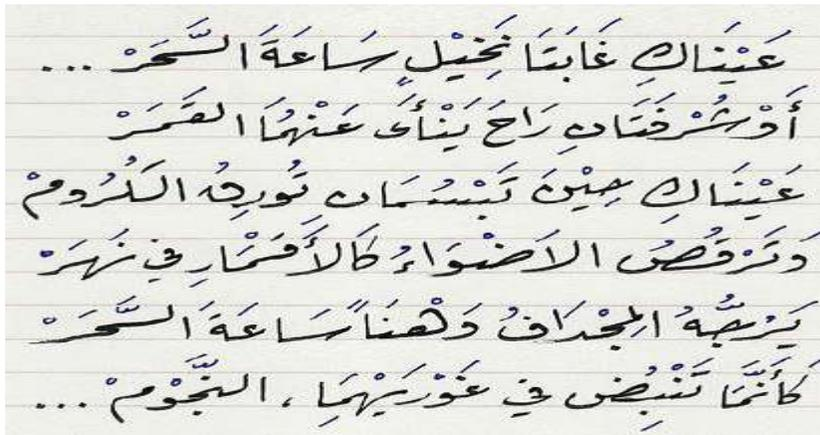 عَيْنَاكِ غَابَتَا نَخِيْلٍ سَاعَةَ السَّحَرْ ...
أَوْ شُرْفَتَانِ رَاحَ يَنْأَى عَنْهُمَا القَمَرْ
عَيْنَاكِ حِيْنَ تَبْسُمَانِ تُورِقُ الكُرُومْ
وَتَرْقُصُ الاَضْوَاءُ كَالأَقْمَارِ في نَهَرْ
يَرُجُّهُ المِجْدَافُ وَهْنَاً سَاعَةَ السَّحَرْ
كَأَنَّمَا تَنْبُضُ في غَوْرَيْهِمَا ، النُّجُوْمْ ...